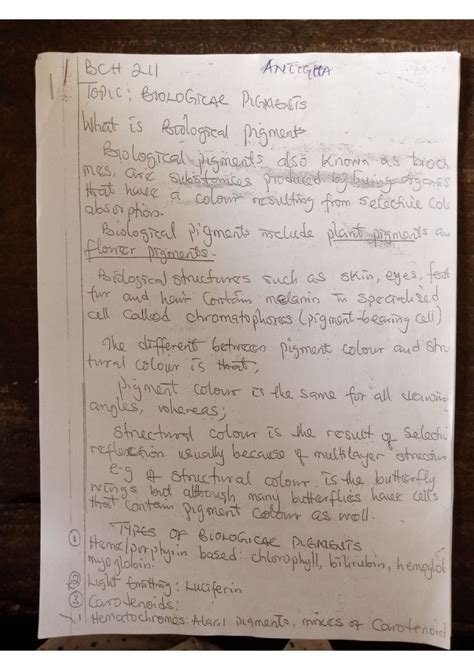 BCH 211 ANTIGHA
TOPIC: BIOLOGICAL PIGMENTS
What is Biological pigments
Biological pigments also known as bioch
mes, are substances produced by living organis
that have a colour resulting from selective colo
absorption.
Biological pigments include plant pigments an
flower pigments.
Biological structures such as skin, eyes, feat
fur and hair contain melanin in specialised
cell called chromatophores (pigment-bearing cell)
The different between pigment colour and stru
tural colour is that,
pigment colour is the same for all viewing
angles, whereas;
structural colour is the result of selecti
reflection usually because of multilayer structure
e.g of structural colour is the butterfly
wings but although many butterflies have cells
that contain pigment colour as well.
TYPES OF BIOLOGICAL PIGMENTS
① Heme/porphyrin based: chlorophyll, bilirubin, hemoglob
myoglobin.
② Light Emitting: Luciferin
③ Carotenoids:
Hematochromes: Algal pigments, mixes of Carotenoid